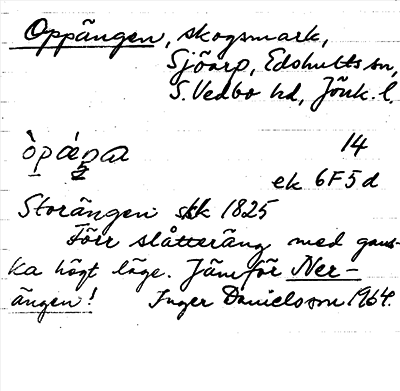 Oppängen, skogsmark,
Sjöarp, Edshults sn,
S. Vedbo hd, Jönk. l.
òpáŋa 14
ek 6F5d
Storängen stk 1825
Förr slåtteräng med gans-
ka högt läge. Jämför Ner-
ängen! Inger Danielsson 1964.